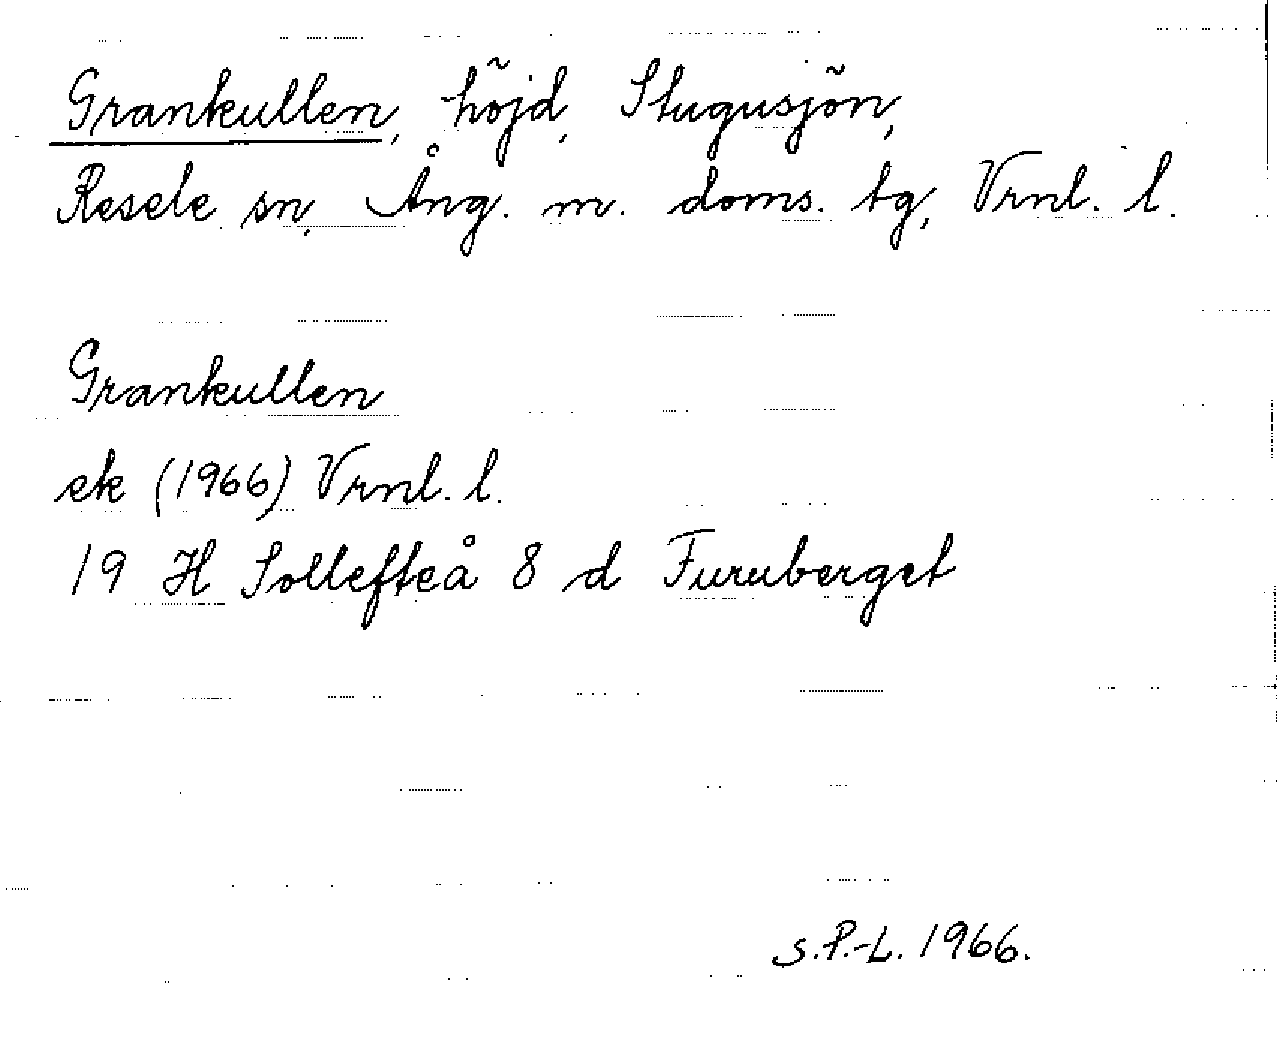 Grankullen, höjd, Stugusjön,
Resele sn, Ång. m. doms. tg, Vrnl. l.
Grankullen
ek (1966) Vrnl. l.
19 H Sollefteå 8 d Furuberget
S.P.-L. 1966.